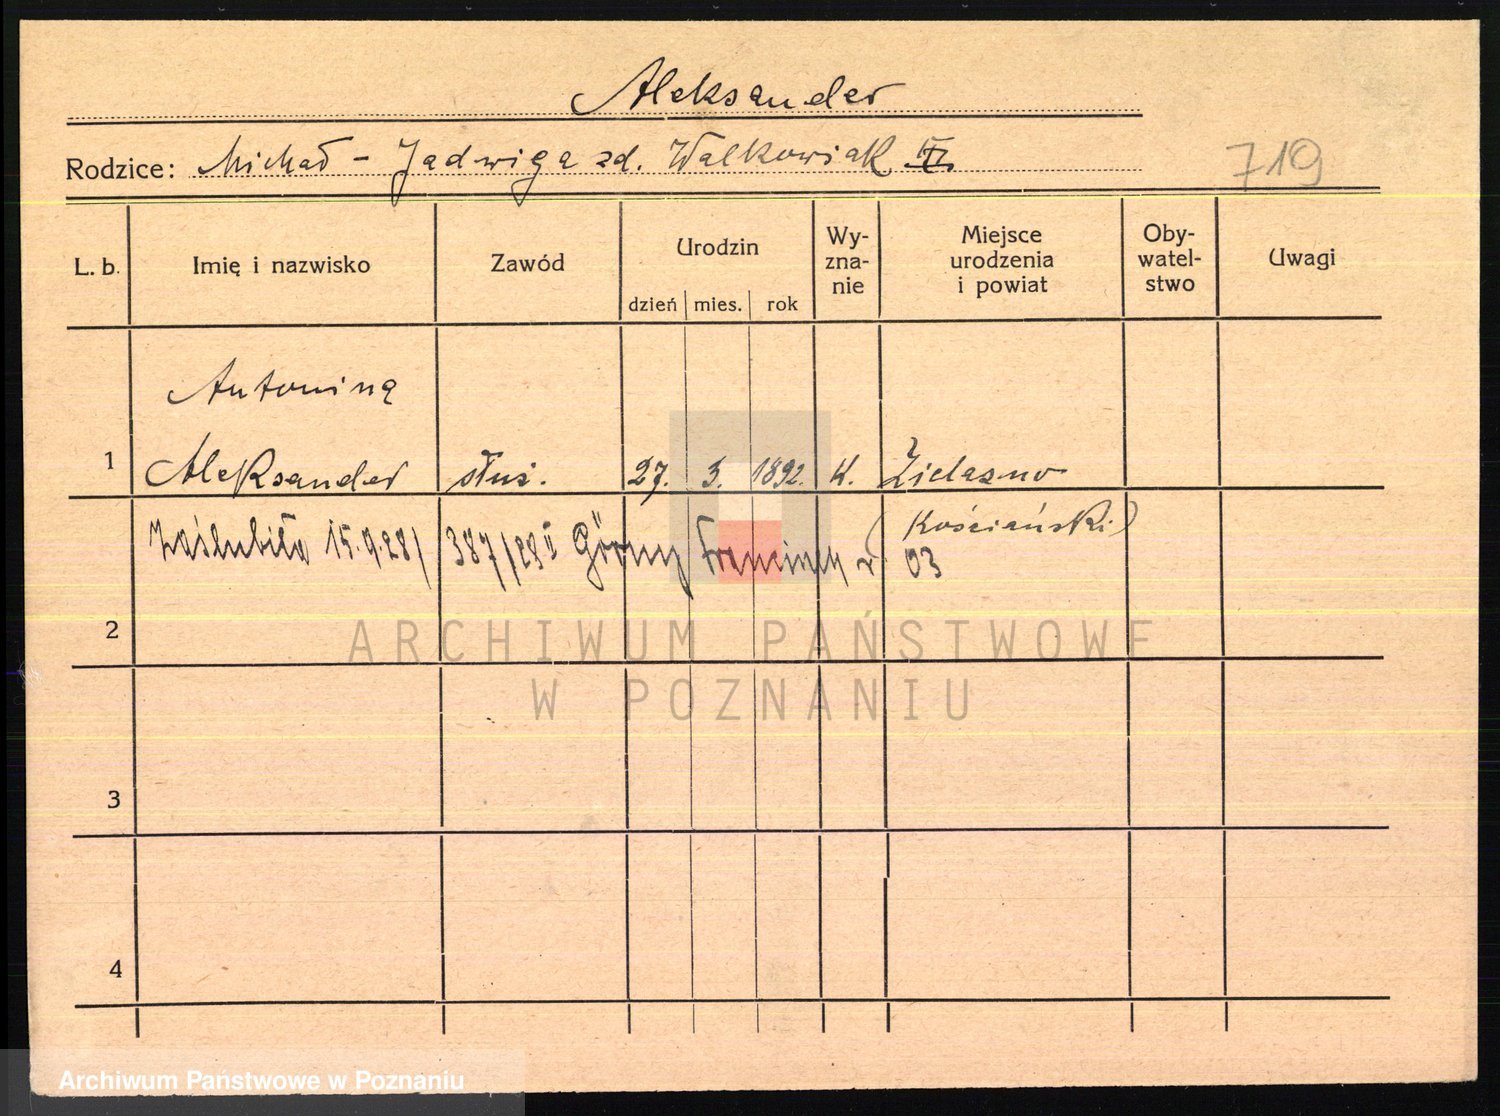 Aleksander
Rodzice: Michał - Jadwiga zd. Walkowiak
719
L. b. Imię i nazwisko Zawód Urodzin dzień mies. rok Wy-zna-nie Miejsce urodzenia i powiat Oby-watel-stwo Uwagi
Antonina
1 Aleksander służ. 27. 3. 1892. K. Żielazno
(Kościański)
Zaślubiła 15.9.28/ 387/28 II Görny 03
2
ARCHIWUM PAŃSTWOWE
W POZNANIU
3
4
Archiwum Państwowe w Poznaniu